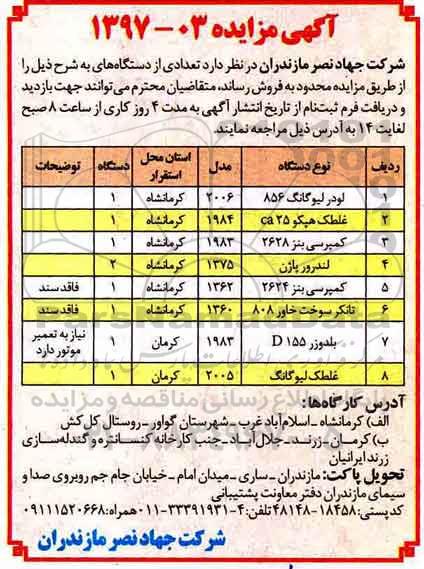 آگهی مزایده ۰۳ - ۱۳۹۷
شرکت جهاد نصر مازندران در نظر دارد تعدادی از دستگاه‌های به شرح ذیل را
از طریق مزایده محدود به فروش رساند، متقاضیان محترم می‌توانند جهت بازدید
و دریافت فرم ثبت‌نام از تاریخ انتشار آگهی به مدت ۴ روز کاری از ساعت ۸ صبح
لغایت ۱۴ به آدرس ذیل مراجعه نمایند.
ردیف نوع دستگاه مدل استان محل استقرار دستگاه توضیحات
۱ لودر لیوگانگ ۸۵۶ ۲۰۰۶ کرمانشاه ۱
۲ غلطک هپکو ca ۲۵ ۱۹۸۴ کرمانشاه ۱
۳ کمپرسی بنز ۲۶۲۸ ۱۹۸۳ کرمانشاه ۱
۴ لندرور پاژن ۱۳۷۵ کرمانشاه ۲
۵ کمپرسی بنز ۲۶۲۴ ۱۳۶۲ کرمانشاه ۱ فاقد سند
۶ تانکر سوخت خاور ۸۰۸ ۱۳۶۰ کرمانشاه ۱ فاقد سند
۷ بلدوزر D ۱۵۵ ۱۹۸۳ کرمان ۱ نیاز به تعمیر موتور دارد
۸ غلطک لیوگانگ ۲۰۰۵ کرمان ۱
آدرس کارگاه‌ها:
الف) کرمانشاه - اسلام‌آباد غرب - شهرستان گواور - روستای کل کش
ب) کرمان - زرند - جلال آباد - جنب کارخانه کنسانتره و گندله‌سازی
زرند ایرانیان
تحویل پاکت: مازندران - ساری - میدان امام - خیابان جام جم روبروی صدا و
سیمای مازندران دفتر معاونت پشتیبانی
کد پستی: ۱۸۴۵۸-۴۸۱۴۸ تلفن: ۴-۳۳۳۹۱۹۳۱-۰۱۱ همراه: ۰۹۱۱۱۵۲۰۶۶۸
شرکت جهاد نصر مازندران